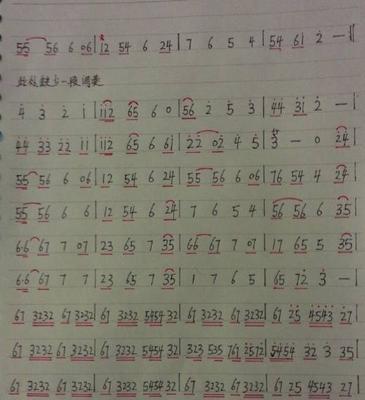 55 56 6 06 | 12 54 6 24 | 7 6 5 4 | 54 61 2 — ‖
4 3 2 1 | 112 65 6 0 | 56 2 5 3 | 44 31 2 — |
44 33 22 11 | 112 65 6 61 | 22 02 4 5 | 3 — 0 24 |
55 56 6 06 | 12 54 6 24 | 55 56 6 06 | 76 54 4 24 |
55 56 6 6 | 12 54 6 24 | 7 6 5 4 | 56 56 6 35 |
6·6 67 7 07 | 23 65 7 35 | 66 67 7 07 | 17 65 5 35 |
6·6 67 7 7 | 23 65 7 35 | 1 7 6 5 | 65 72 3 — |
67 3232 67 3232 | 67 3232 5454 32 | 67 3232 67 3232 | 67 25 4543 27 |
67 3232 67 3232 | 67 3232 5454 32 | 323 535 767 2572 | 5454 32 3 35 |
67 3232 67 3232 | 67 3232 5454 32 | 67 3232 67 3232 | 67 25 4543 27 |